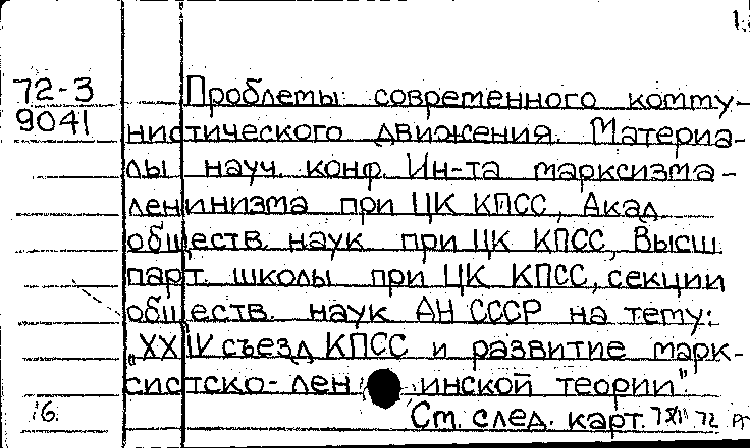 72-3 Проблемы современного комму-
9041 нистического движения. Материа-
лы науч. конф. Ин-та марксизма-
ленинизма при ЦК КПСС, Акад.
обществ. наук при ЦК КПСС, Высш.
парт. школы при ЦК КПСС, секции
обществ. наук АН СССР на тему:
„XXIV съезд КПСС и развитие марк-
систско-ленинской теории".
16. См. след. карт. 72